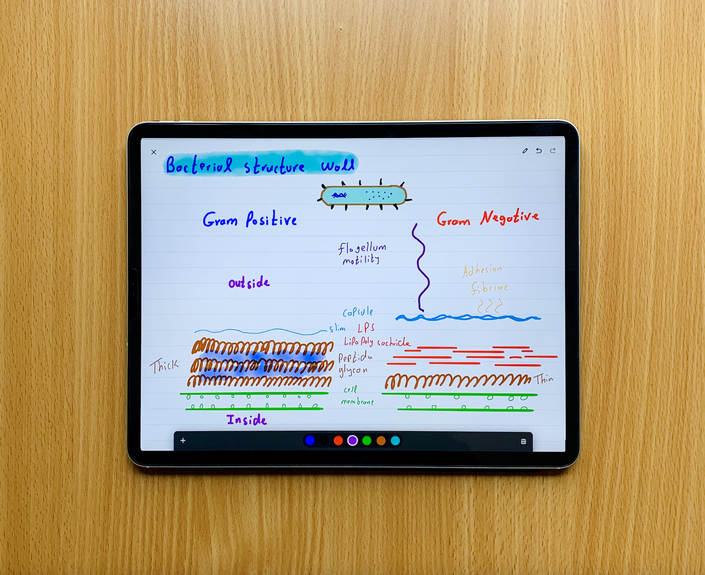 Bacterial structure wall
Gram Positive
Gram Negative
flagellum
motility
Adhesion
fibriae
outside
capsule
slim
LPS
LiPoPoly sachride
Thick
Peptido
glycan
Thin
cell
membrane
Inside